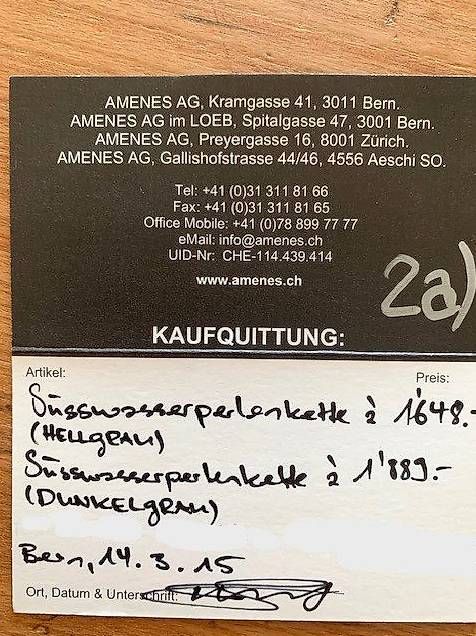 AMENES AG, Kramgasse 41, 3011 Bern.
AMENES AG im LOEB, Spitalgasse 47, 3001 Bern.
AMENES AG, Preyergasse 16, 8001 Zürich.
AMENES AG, Gallishofstrasse 44/46, 4556 Aeschi SO.
Tel: +41 (0)31 311 81 66
Fax: +41 (0)31 311 81 65
Office Mobile: +41 (0)78 899 77 77
eMail: info@amenes.ch
UID-Nr: CHE-114.439.414
www.amenes.ch
2a)
KAUFQUITTUNG:
Artikel: Preis:
Süsswasserperlenkette à 1'648.-
(HELLGRAU)
Süsswasserperlenkette à 1'889.-
(DUNKELGRAU)
Bern, 14.3.15
Ort, Datum & Unterschrift: